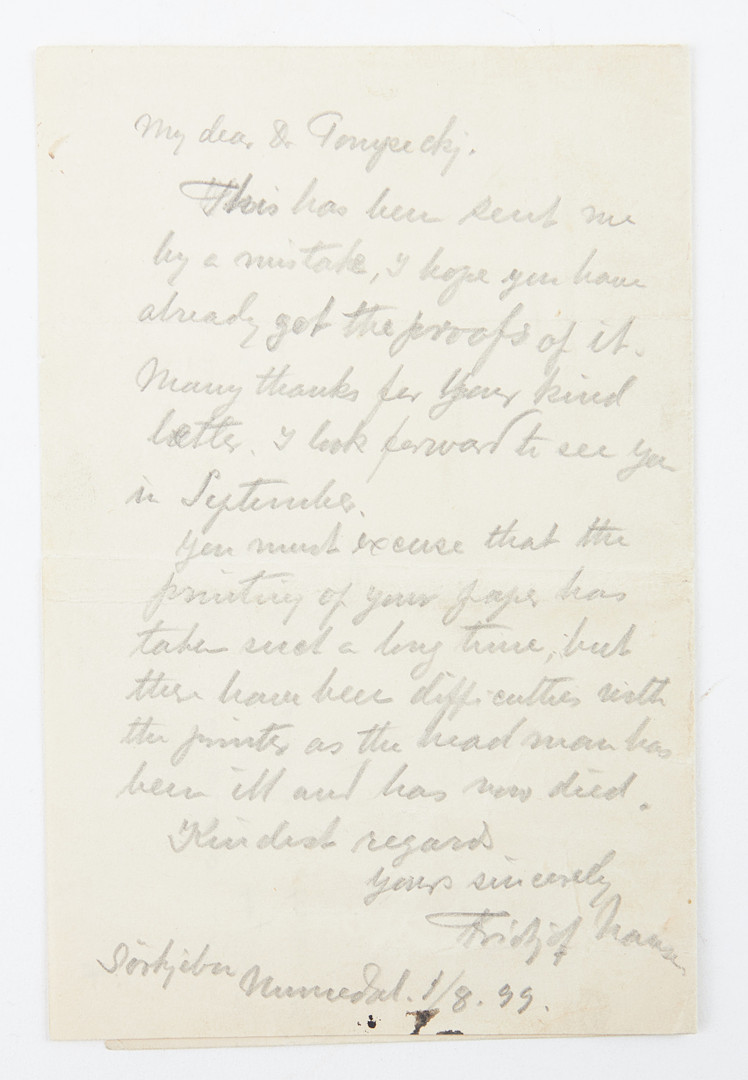 My dear Dr Pompeckj.
This has been sent me
by a mistake, I hope you have
already got the proofs of it.
Many thanks for your kind
letter. I look forward to see you
in September.
You must excuse that the
printing of your paper has
taken such a long time, but
there have been difficulties with
the printer as the head man has
been ill and has now died.
Kindest regards
Yours sincerely
Fridtjof Nansen
Sörkjebu
Numedal. 1/8. 99.